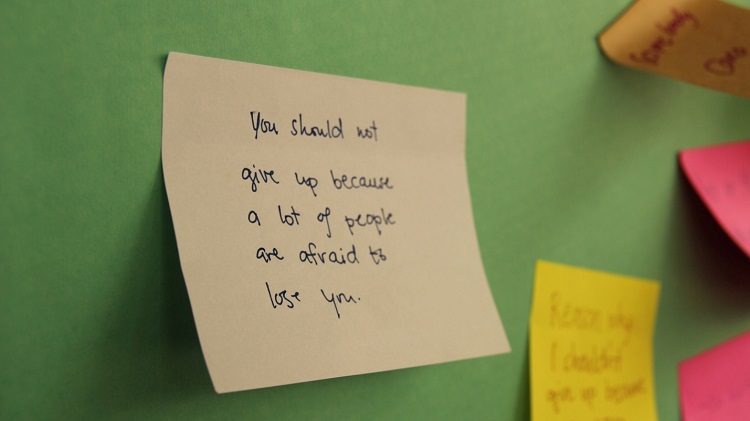 You should not
give up because
a lot of people
are afraid to
lose you.
Somebody
Reason why
I shouldn't
give up because